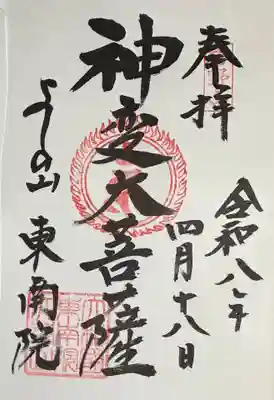 奉拝
令和八年
四月十八日
神変大菩薩
よしの山
東南院